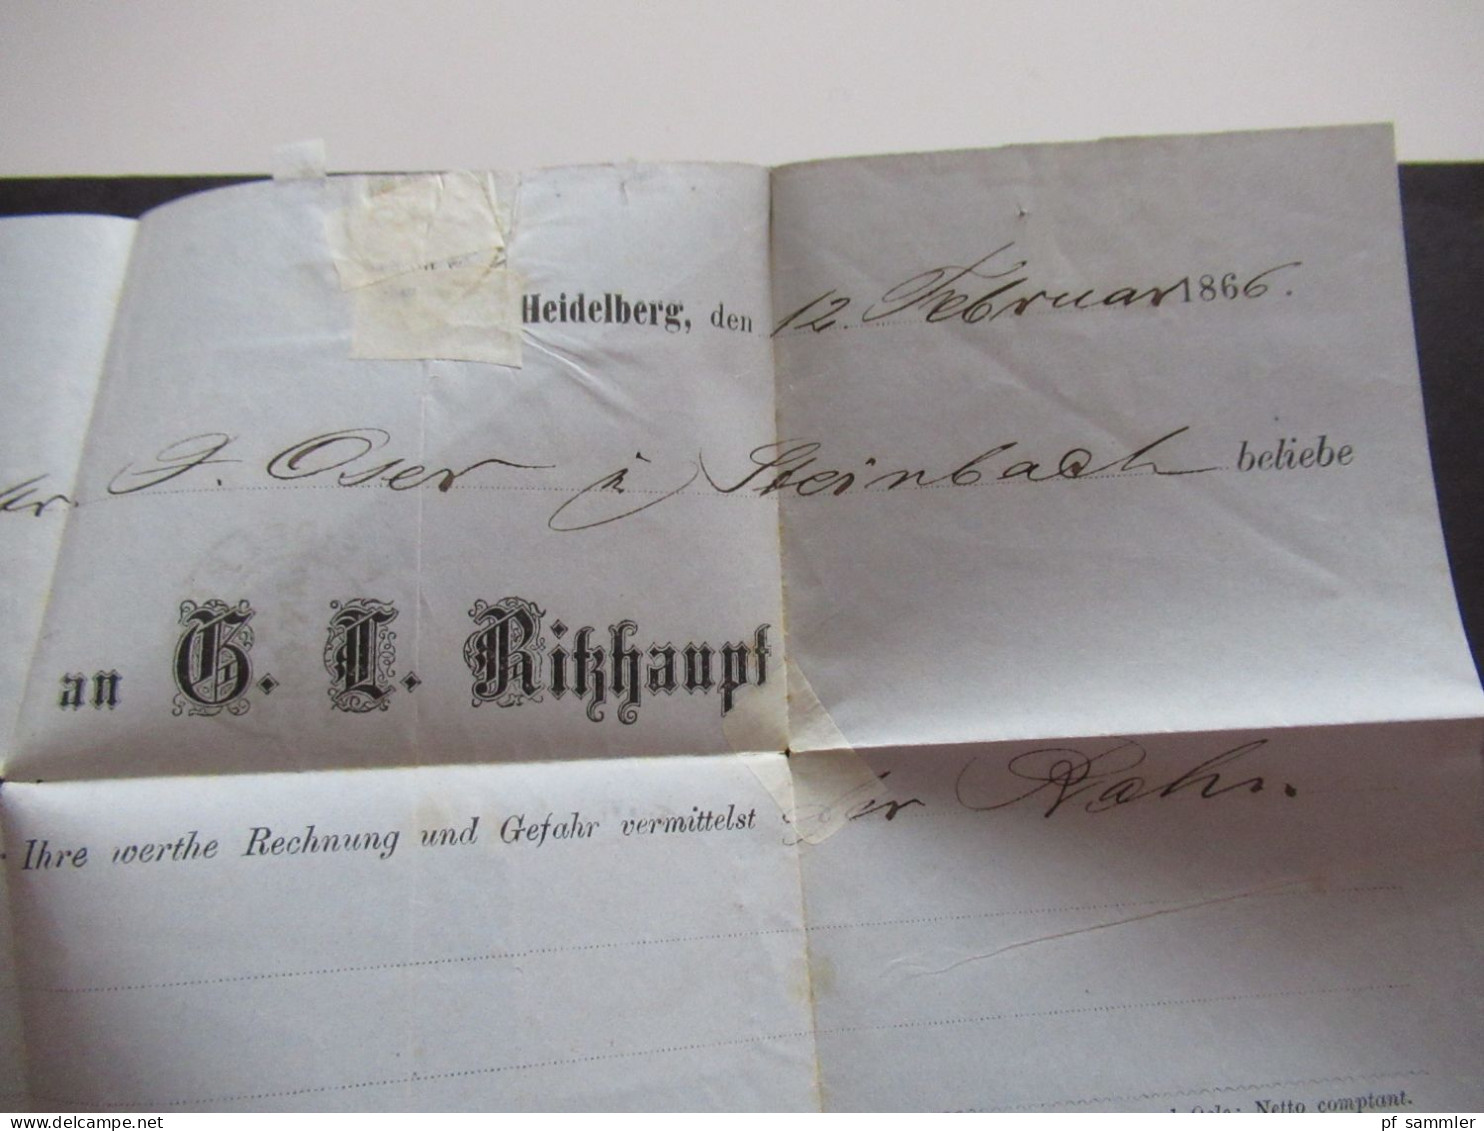 Heidelberg, den 12. Februar 1866.
Hr. J. Oser in Steinbach beliebe
an G. L. Ritzhaupt
Ihre werthe Rechnung und Gefahr vermittelst per Bahn.
Netto comptant.
pf_sammler
www.delcampe.net